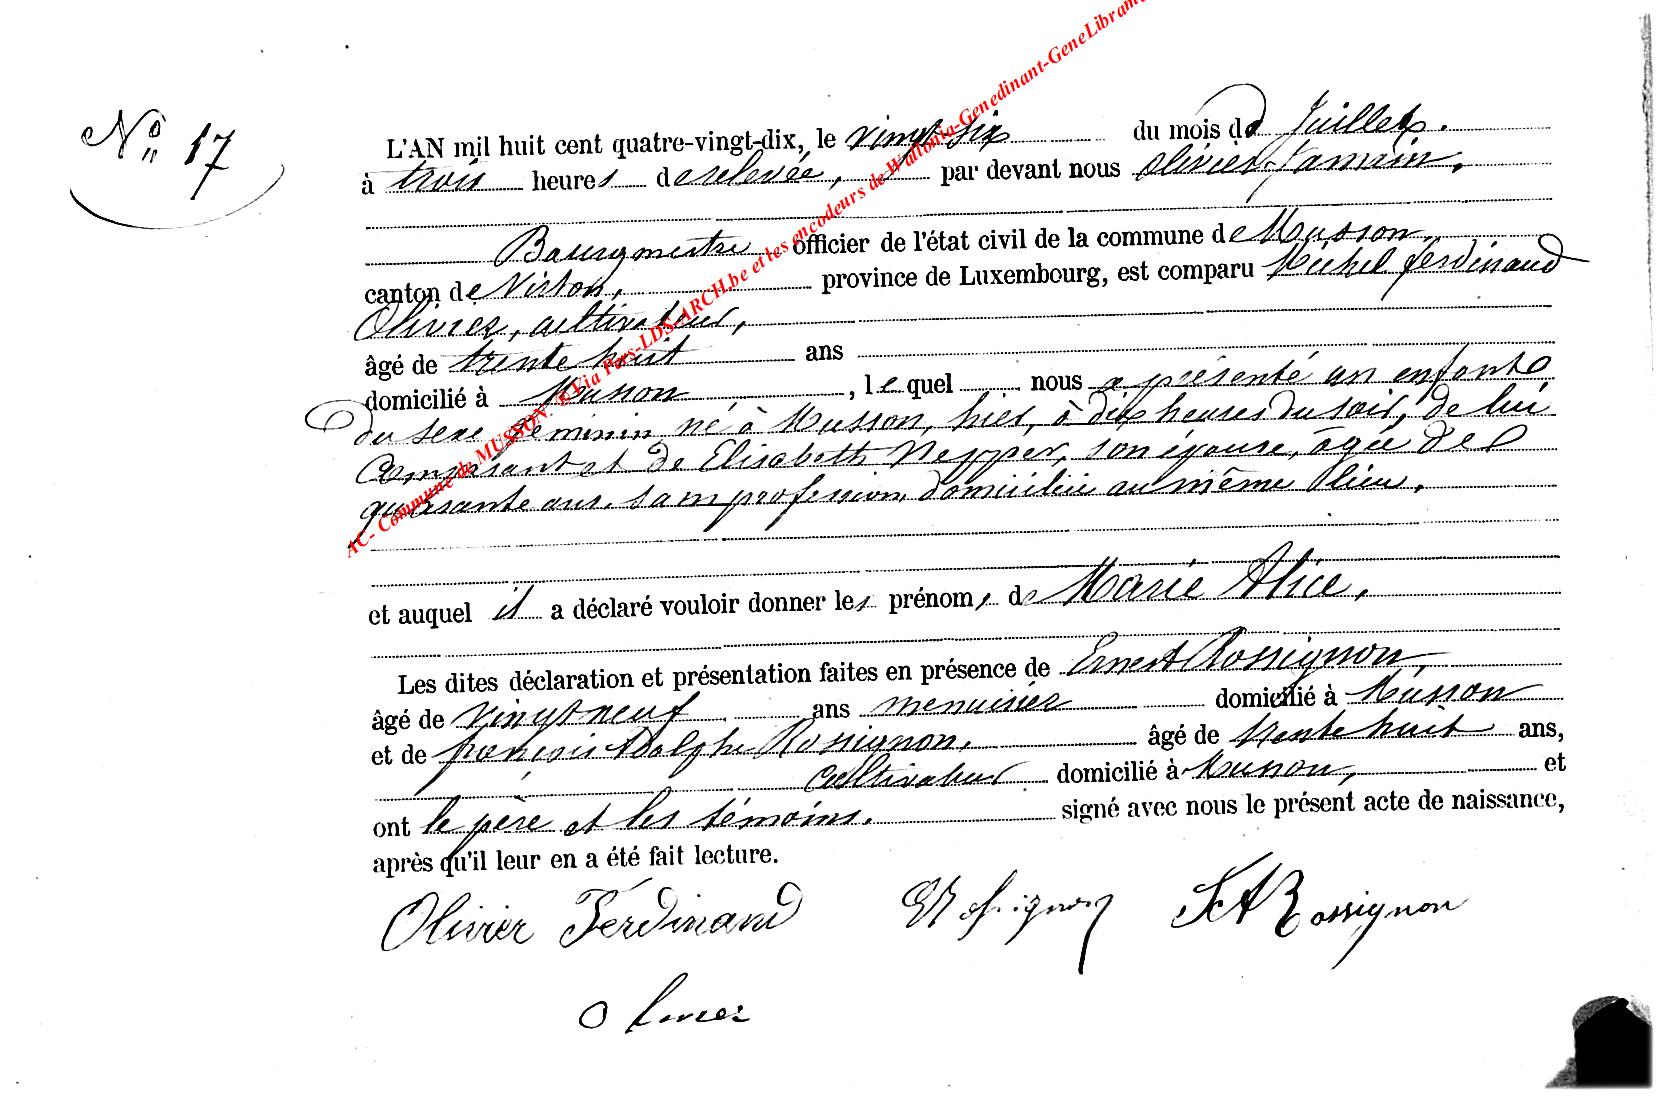 N° 17
L'AN mil huit cent quatre-vingt-dix, le vingt six du mois de Juillet.
à trois heures de relevée, par devant nous Olivier Jamain,
Bourgmestre officier de l'état civil de la commune de Musson,
canton de Virton, province de Luxembourg, est comparu Michel Ferdinand
Olivier, cultivateur,
âgé de trente huit ans
domicilié à Musson, lequel nous a présenté un enfant
du sexe féminin né à Musson, hier, à dix heures du soir, de lui
comparant et de Elisabeth Nepper, son épouse, âgée de
quarante ans, sans profession, domiciliée au même lieu.
et auquel il a déclaré vouloir donner les prénoms de Marie Alice.
Les dites déclaration et présentation faites en présence de Ernest Rossignon,
âgé de vingt neuf ans menuisier domicilié à Musson
et de françois Adolphe Rossignon, âgé de trente huit ans,
cultivateur domicilié à Musson, et
ont le père et les témoins. signé avec nous le présent acte de naissance,
après qu'il leur en a été fait lecture.
Olivier Ferdinand E Rossignon F A Rossignon
AC- Commune de MUSSON Via Pars-LDS-ARCH.be et les encodeurs de Wallonia-Genedinant-GeneLibramo